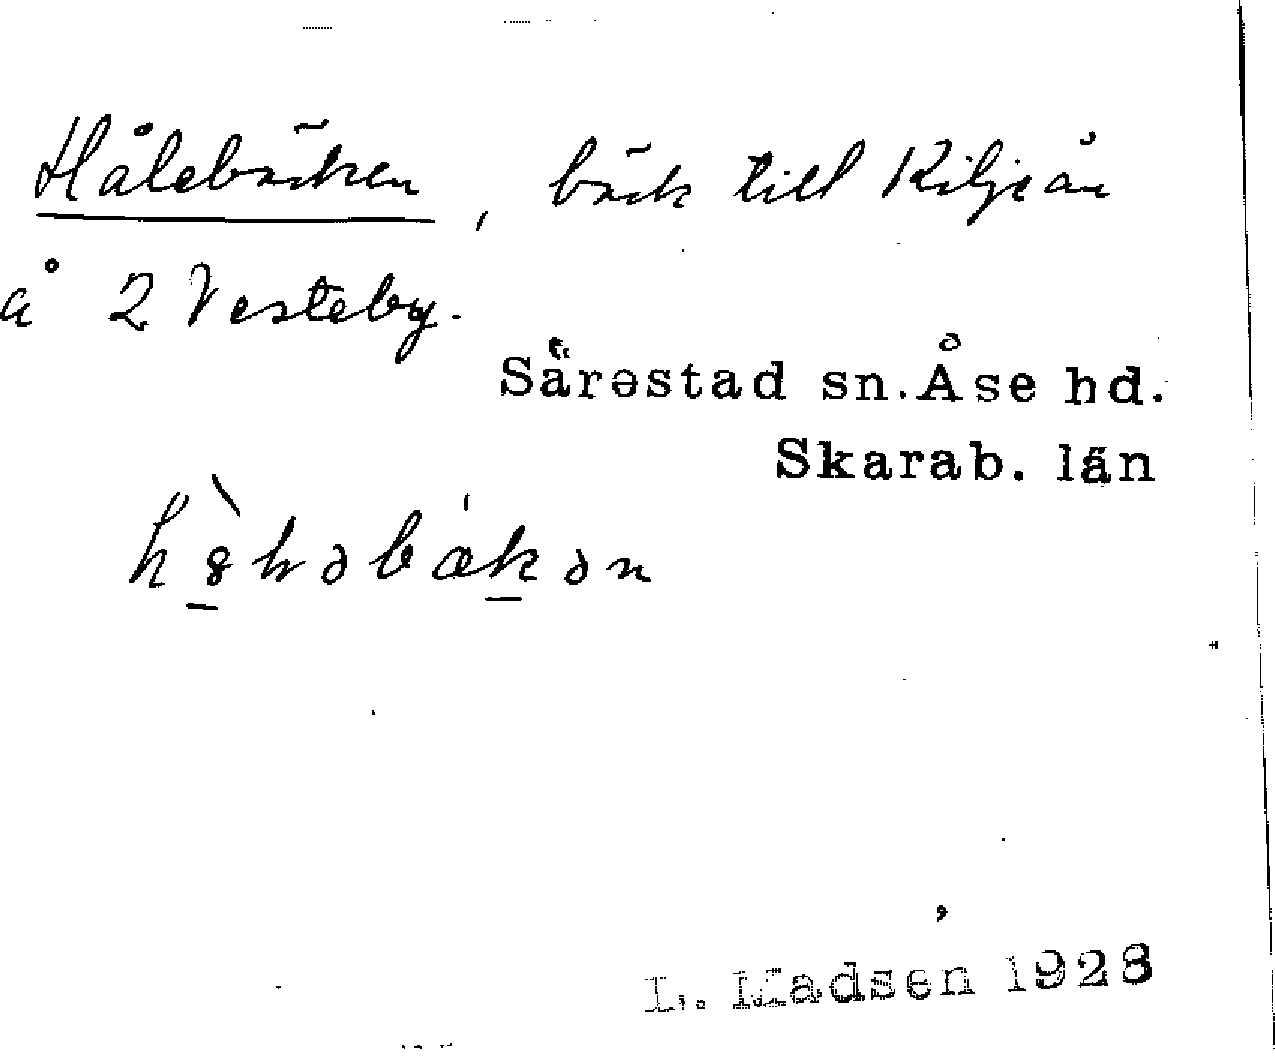 Hålebäcken, bäck till Kiljeån
å 2 Vesteby.
Särestad sn. Åse hd.
Skarab. län
L. Madsen 1928